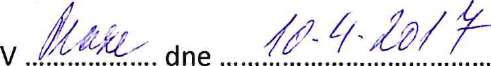 V Praze dne 10-4-2017